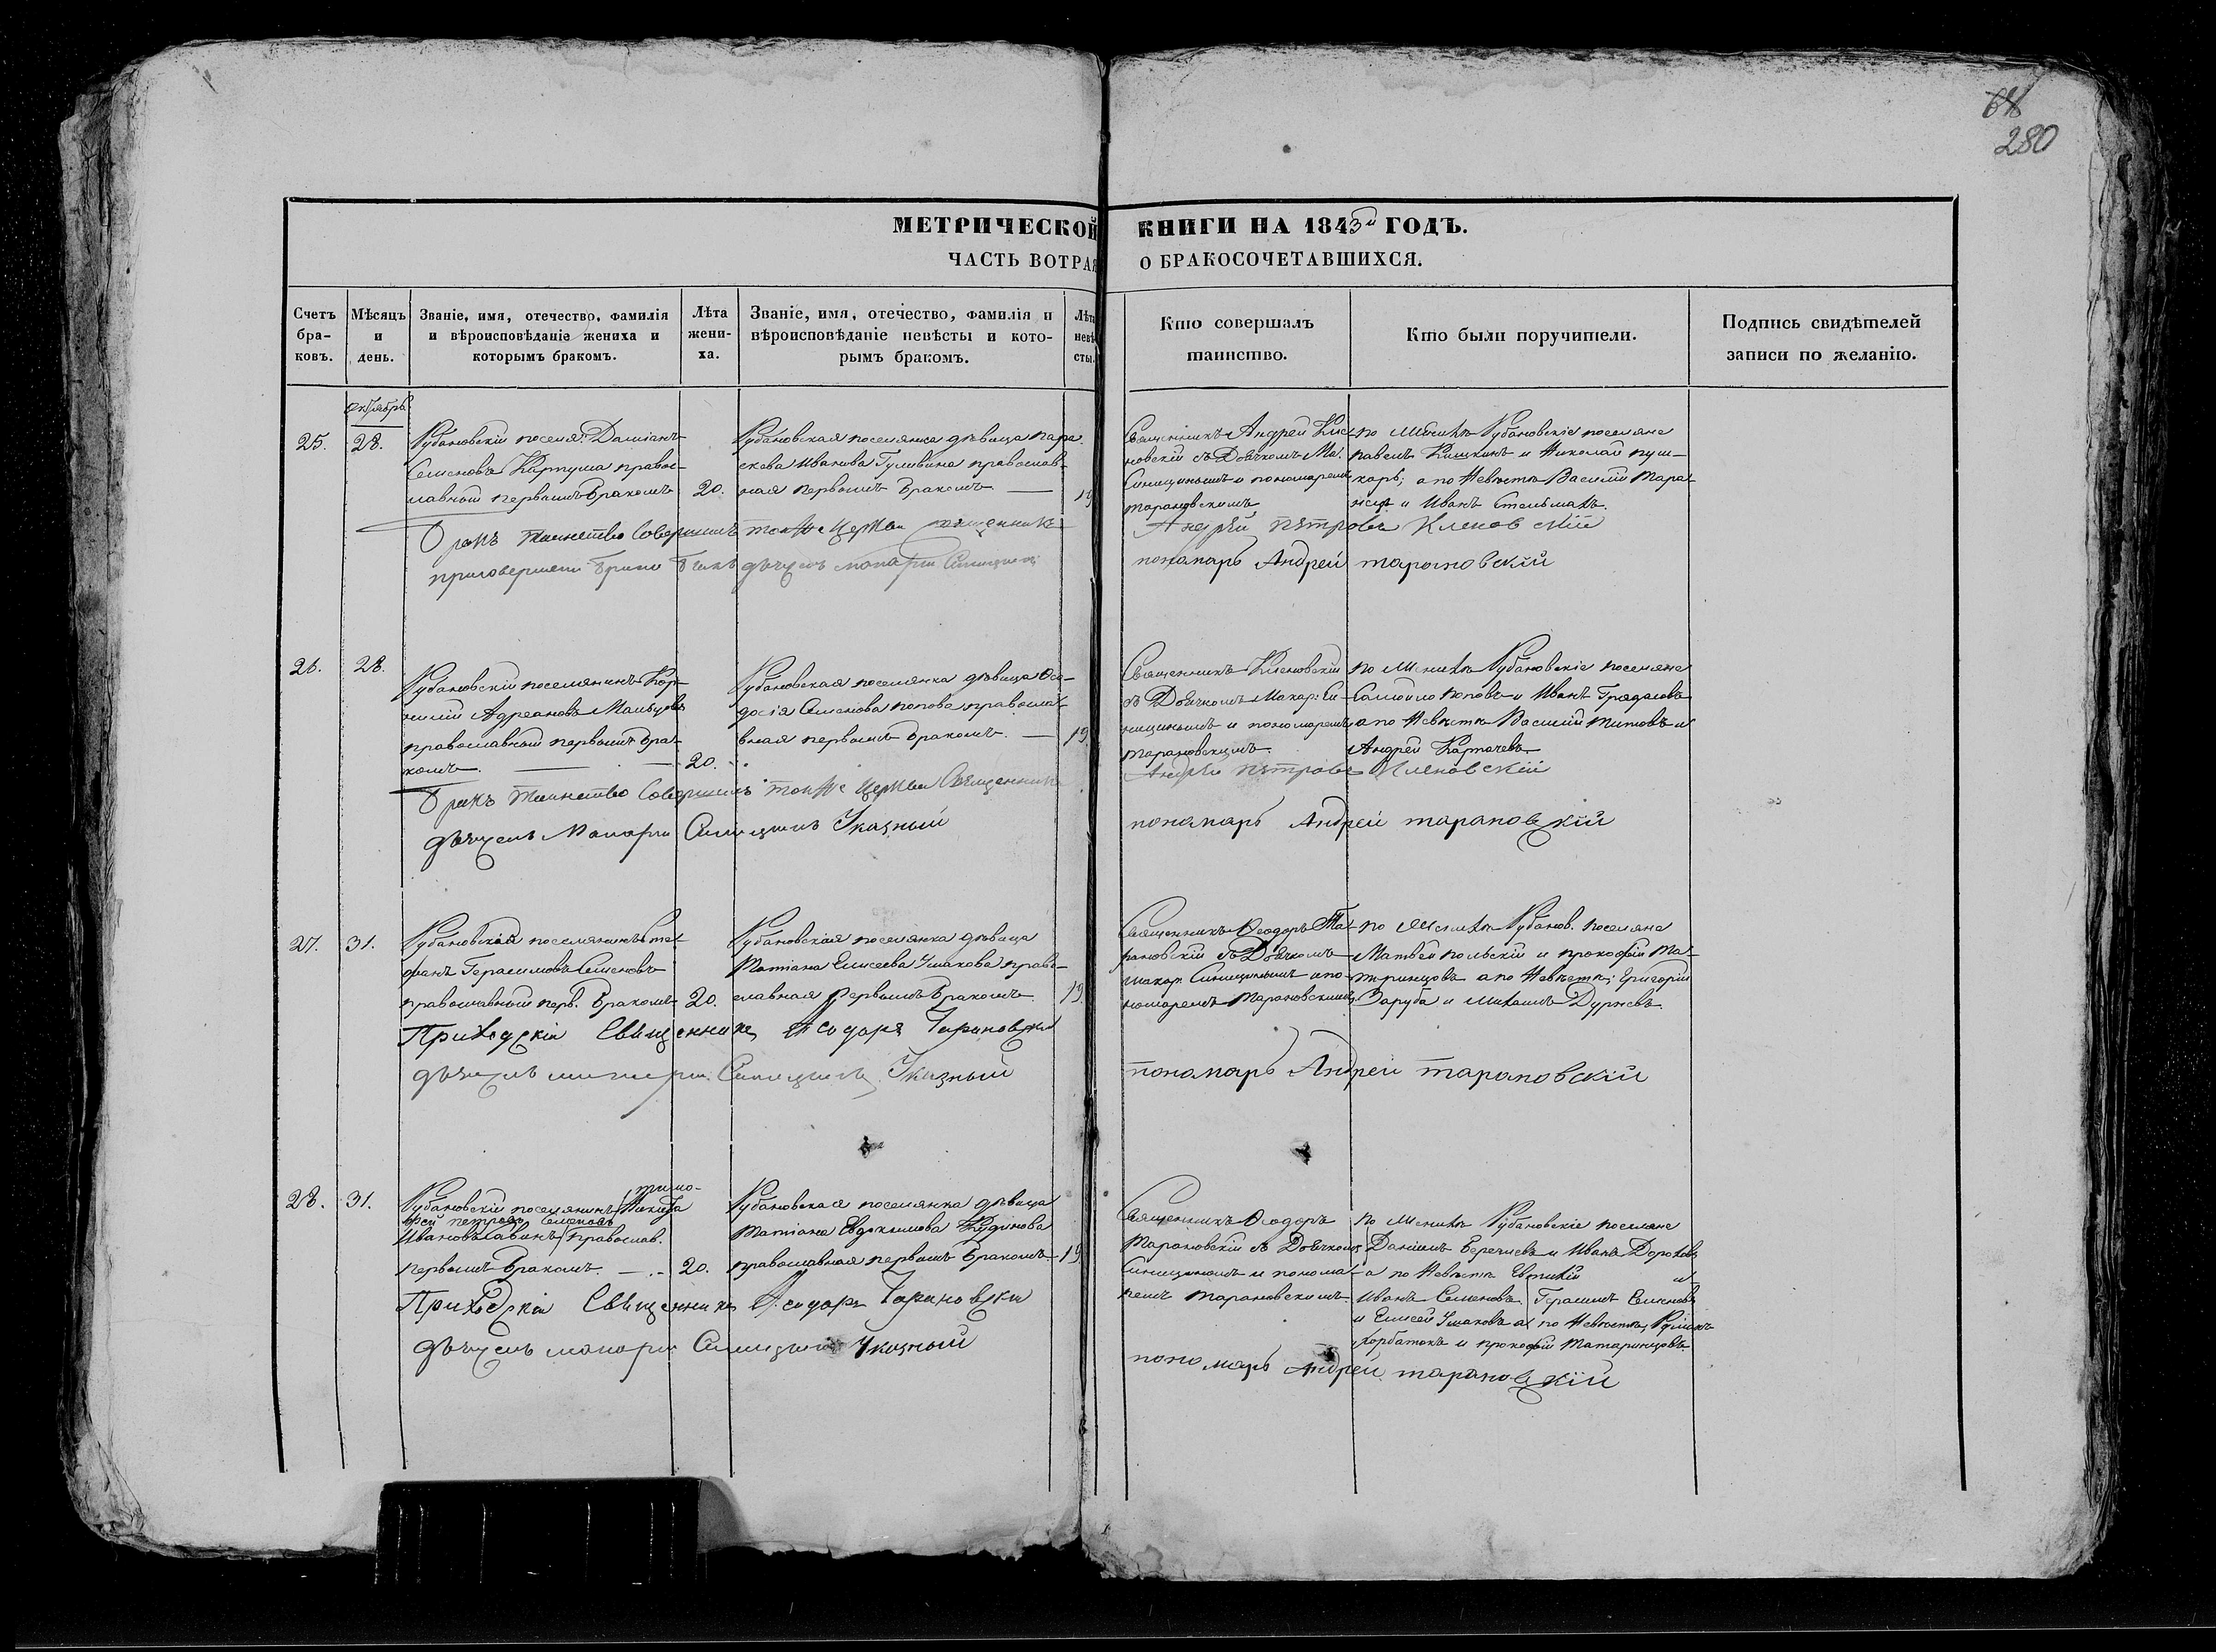 68
280
МЕТРИЧЕСКОЙ КНИГИ НА 1843й ГОДЪ.
ЧАСТЬ ВОТРАЯ О БРАКОСОЧЕТАВШИХСЯ.
Счетъ бра-ковъ.
Мѣсяцъ и день.
Званіе, имя, отечество, фамилія и вѣроисповѣданіе жениха и которымъ бракомъ.
Лѣта жени-ха.
Званіе, имя, отечество, фамилія и вѣроисповѣданіе невѣсты и кото-рымъ бракомъ.
Лѣта невѣ-сты.
Кто совершалъ таинство.
Кто были поручители.
Подпись свидѣтелей записи по желанію.
октябрь
25. 28.
Рубановскій поселя: Даміанъ
Семеновъ Картуша правос-
лавный первымъ бракомъ
20.
Рубановская поселянка дѣвица Пара-
скева Иванова Гуливина православ-
ная первымъ бракомъ
19
Священникъ Андрей Кле-
новскій съ Дьячкомъ Ма.
Синицинымъ и пономаремъ
Тарановскимъ
по Женихѣ Рубановскіе поселяне
Павелъ Кишкинъ и Николай Пуш-
карь; а по Невѣстѣ Василій Тара-
и Иванъ Стельмахъ.
Бракъ Таинство Совершилъ тойже Церкви Священникъ
Андрей Петровъ Кленовскій
дьячекъ Макарій Синицинъ
пономарь Андрей Тарановскій
26. 28.
Рубановскій поселянинъ Кор-
нилій Адреановъ Мальцовъ
православный первымъ бра-
комъ
20.
Рубановская поселянка дѣвица Ѳео-
досія Семенова Попова правосла-
вная первымъ бракомъ
19.
Священникъ Кленовскій
съ Дьячкомъ Макар: Си-
ницинымъ и пономаремъ
Тарановскимъ.
по Женихѣ Рубановскіе поселяне
Самойло Поповъ и Иванъ
а по Невѣстѣ Василій Титовъ и
Андрей Картачевъ
Бракъ Таинство Совершилъ тойже Церкви Священникъ
Андрей Петровъ Кленовскій
дьячекъ Макарій Синицинъ Указный
пономарь Андрей Тарановскій
27. 31.
Рубановскій поселянинъ Сте-
фанъ Герасимовъ Семеновъ
православный перв. бракомъ
20.
Рубановская поселянка дѣвица
Татіана Елисеева Ушакова право-
славная первымъ бракомъ
19.
Священникъ Ѳеодоръ Та-
рановскій съ Дьячкомъ
Макар. Синицинымъ и по-
номаремъ Тарановскимъ
по Женихѣ Рубанов. поселяне
Матвей Польскій и Прокофій Та-
таринцовъ а по Невѣстѣ; Григорій
Заруба и Михаилъ Дуржевъ.
Приходскій Священникъ Ѳеодоръ Тарановскій
дьячекъ Макарій Синицинъ Указный
пономарь Андрей Тарановскій
28. 31.
Тимо-
Рубановскій поселянинъ Никита
фей Петровъ Семеновъ
Ивановъ Савинъ православ.
первымъ бракомъ.
20.
Рубановская поселянка дѣвица
Татіана Евдокимова Кудинова
православная первымъ бракомъ
19
Священникъ Ѳеодоръ
Тарановскій съ Дьячкомъ
Синицинымъ и понома-
ремъ Тарановскимъ.
по Женихѣ Рубановскіе поселяне
Даніилъ и Иванъ Дороховъ
а по Невѣстѣ Евтихій и
Иванъ Семеновъ. Герасимъ Семеновъ
и Елисей Ушаковъ а по Невѣстѣ,
Горбатокъ и Прокофій Татаринцовъ.
Приходскій Священникъ Ѳеодоръ Тарановскій
дьячекъ Макарій Синицинъ Указный
пономарь Андрей Тарановскій